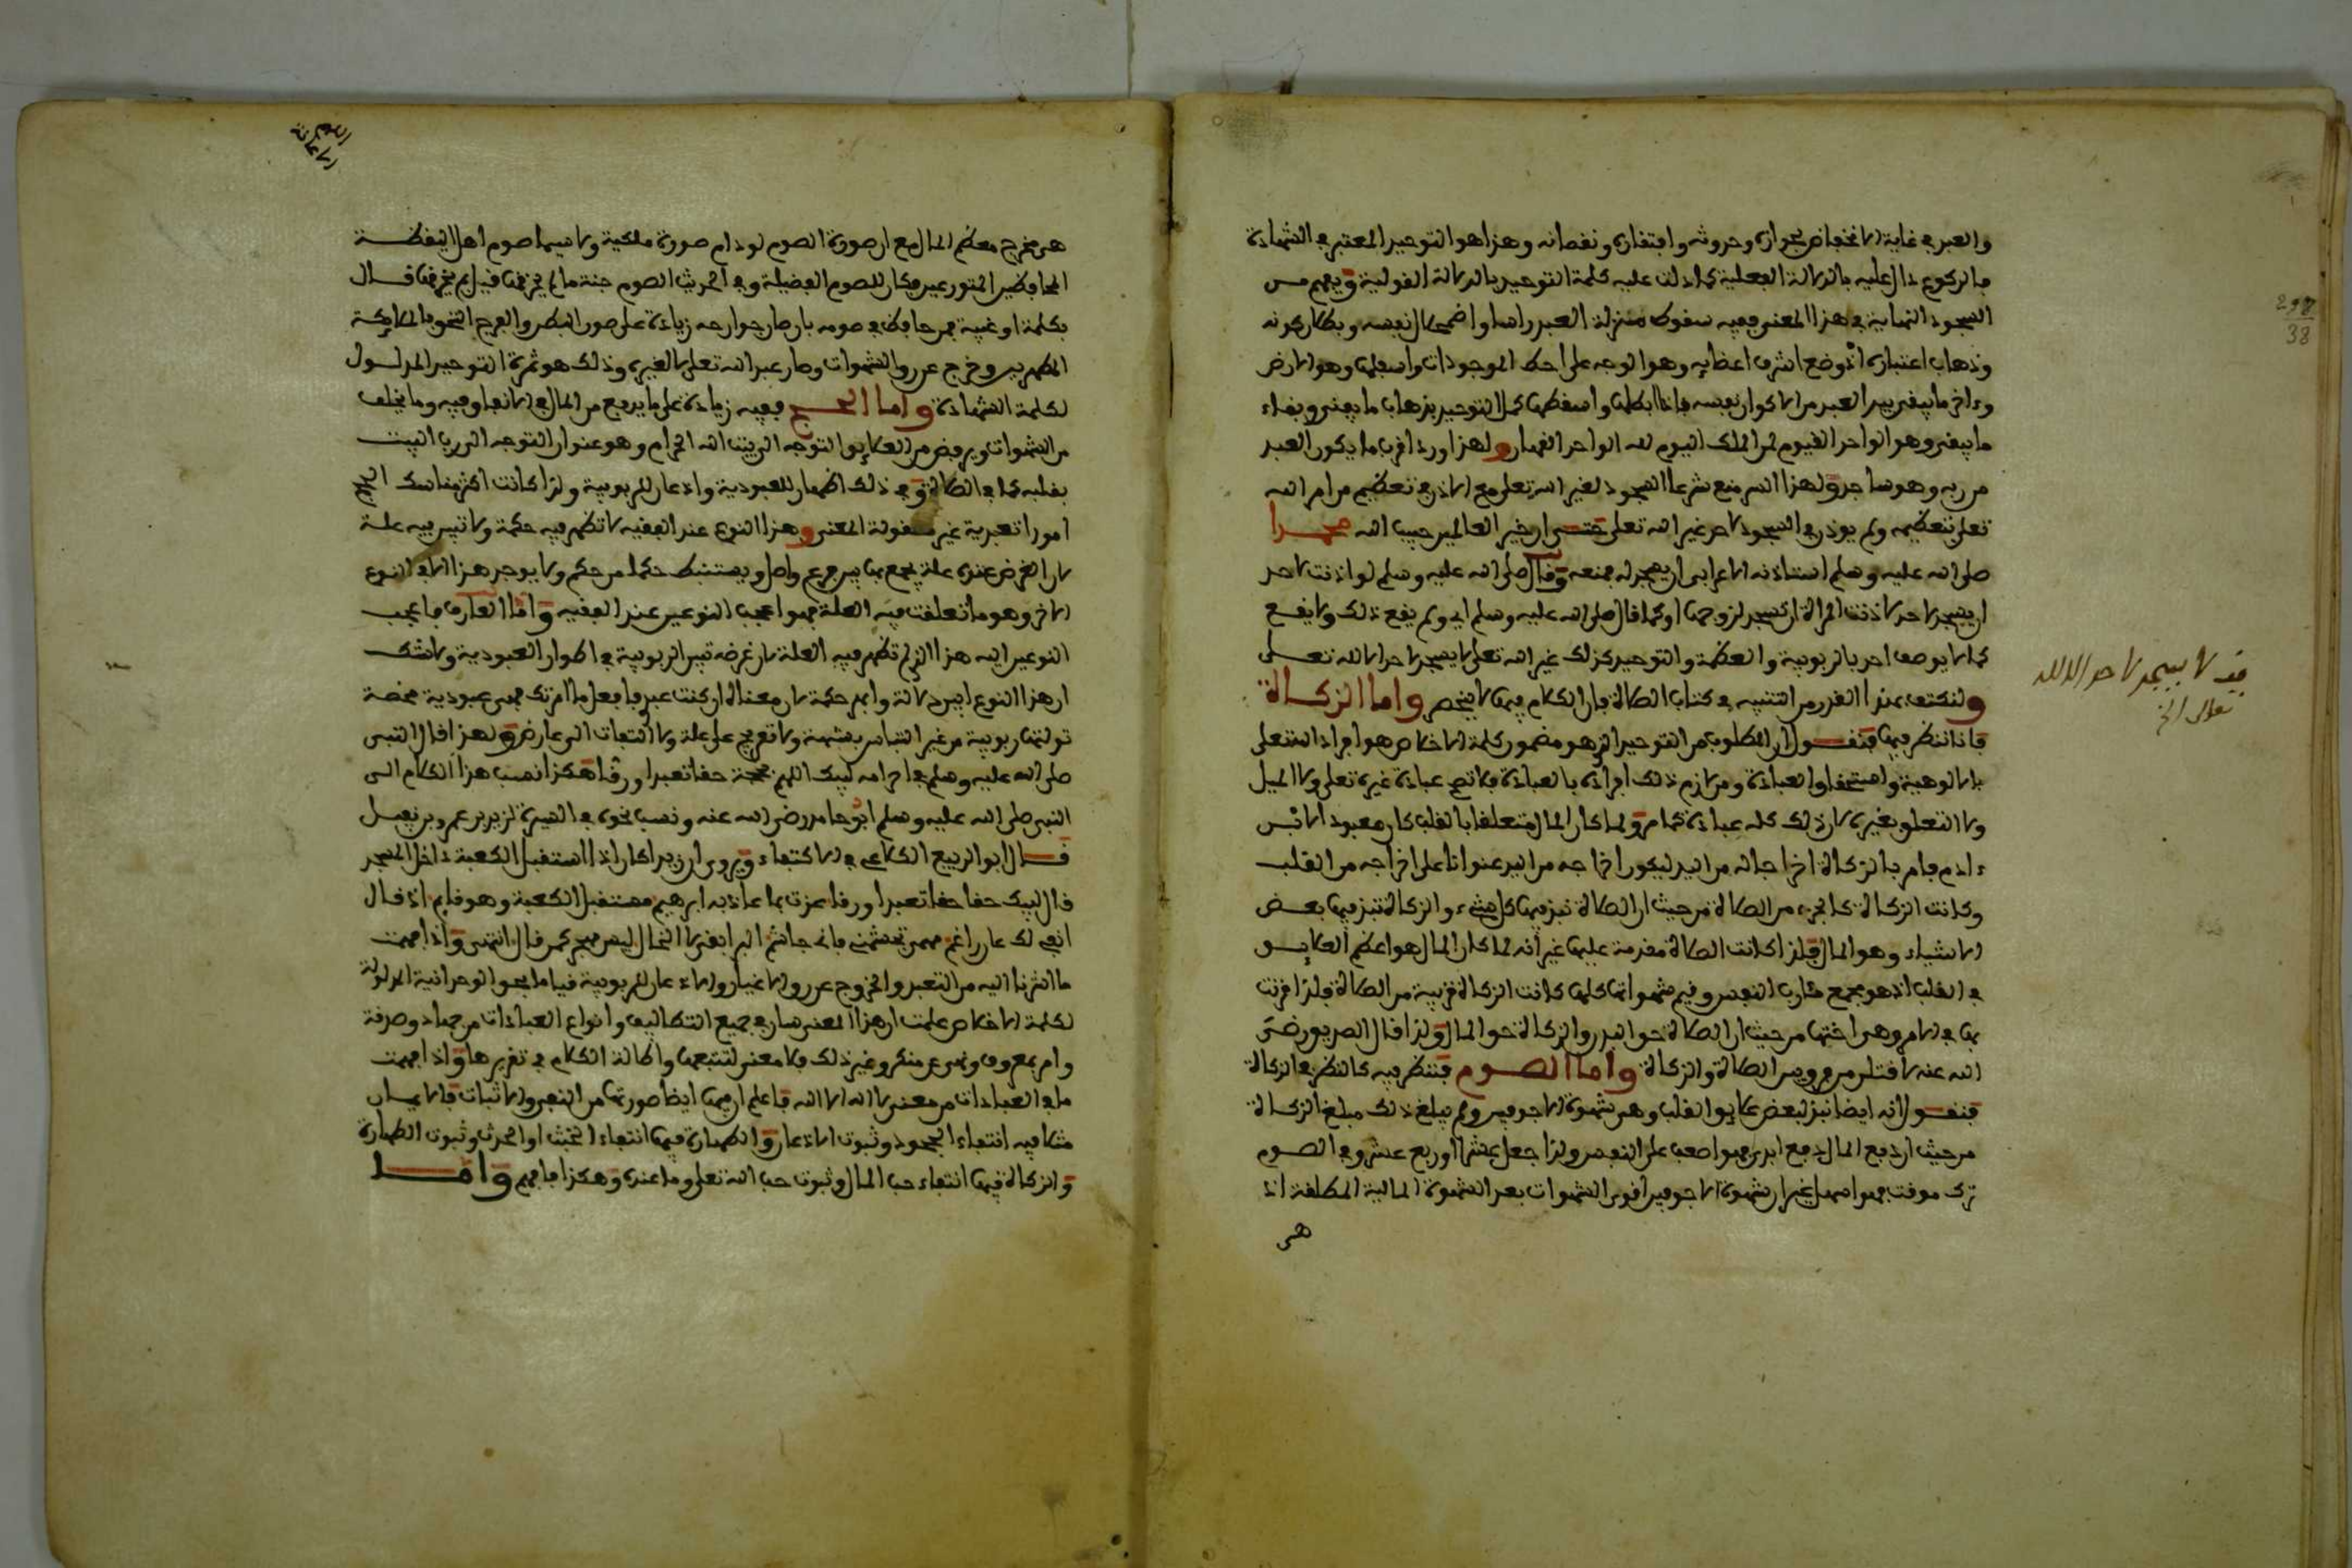 والعبد في غاية الانخفاض لجوازه وحدوثه وافتقاره ونقصانه وهذا هو التوحيد المعتبر في الشهادة
فالركوع دال عليه بالدلالة الفعلية كما دلت عليه كلمة التوحيد بالدلالة القولية ويفهم من
السجود النهاية في هذا المعنى ففيه سقوط منزلة العبد راسا واضمحلال نفسه وبطلان كونه
وذهاب اعتباره اذ وضع اشرف اعضايه وهو الوجه على احط الموجودات واسفلها وهو الارض
وءاخر ما يبقى بيد العبد من الاكوان نفسه فاذا ابطلها واسقطها كمل التوحيد بذهاب ما يفنى وبقاء
ما يبقى وهو الواحد القيوم لمن الملك اليوم لله الواحد القهار ولهذا ورد اقرب ما يكون العبد
من ربه وهو ساجد ولهذا السر منع شرعا السجود لغير الله تعلى مع الاذن في تعظيم من امر الله
تعلى بتعظيمه ولم يوذن في السجود لاحد غير الله تعلى حتى ان خير العالمين حبيب الله محمدا
صلى الله عليه وسلم استاذنه الاعرابي ان يسجد له فمنعه وقال صلى الله عليه وسلم لو اذنت لاحد
ان يسجد لاحد لاذنت المراة ان تسجد لزوجها او كما قال صلى الله عليه وسلم اي ولم يقع ذلك ولا يقع
كما لا يوصف احد بالربوبية والعظمة والتوحيد كذلك غير الله تعلى لا يسجد لاحد الا لله تعلى
ولنكتف بهذا القدر من التنبيه في كتاب الصلاة فان الكلام فيها لا ينحصر واما الزكاة
فاذا ننظر فيها فنقول ان المطلوب من التوحيد الذي هو مضمون كلمة الاخلاص هو افراد الله تعلى
بالالوهية واستحقاق العبادة ومن لازم ذلك افراده بالعبادة فلا تصح عبادة غيره تعلى ولا الميل
ولا التعلق بغيره لان ذلك كله عبادة كما مر ولما كان المال متعلقا بالقلب كان معبودا لانس
ءادم فامر بالزكاة اخراجا له من اليد ليكون اخراجه من اليد عنوانا على اخراجه من القلب
وكانت الزكاة كالجزء من الصلاة من حيث ان الصلاة نبذ فيها كل شيء والزكاة نبذ فيها بعض
الاشياء وهو المال فلذا كانت الصلاة مقدمة عليها غير انه لما كان المال هو اعظم العلايق
في القلب اذ هو مجمع مئارب النفس وفيم شهواتها كلها كانت الزكاة قريبة من الصلاة فلذا قرنت
بها في الامر وهي اختها من حيث ان الصلاة حق البدن والزكاة حق المال ولذا قال الصديق رضي
الله عنه لاقتلن من فرق بين الصلاة والزكاة واما الصوم فننظر فيه كالنظر في الزكاة
فنقول انه ايضا نبذ لبعض علايق القلب وهي شهوة الاجوفين ولم يبلغ ذلك مبلغ الزكاة
من حيث ان دفع المال دفع ابدي فهو اصعب على النفس ولذا جعل عشرا او ربع عشر وفي الصوم
ترك موقت فهو اسهل غير ان شهوة الاجوفين اقوى الشهوات بعد الشهوة المالية المطلقة اذ
هي
فيه لا يسجد لاحد الا لله
تعلى الخ
298
38
هي مخرج معظم المال مع ان صورة الصوم لو دام صورة ملكية ولا سيما صوم اهل اليقظة
المحافظين المتورعين فكان للصوم الفضيلة وفي الحديث الصوم جنة ما لم يخرقها قيل بم يخرقها قال
بكلمة او غيبة فمن حافظ في صومه بان صان جوارحه زيادة على صون البطن والفرج التحق بالملايكة
المطهرين وخرج عن رق الشهوات وصار عبد الله تعلى لا لغيره وذلك هو ثمرة التوحيد المدلول
لكلمة الشهادة واما الحج ففيه زيادة على ما يدفع من المال في الانفاق فيه وما يخلف
من الشهوات ويرفض من العلايق التوجه الى بيت الله الحرام وهو عنوان التوجه الى رب البيت
بقلبه كما في الصلاة وفي ذلك اظهار للعبودية واذعان للربوبية ولذا كانت اكثر مناسك الحج
امورا تعبدية غير معقولة المعنى وهذا النوع عند الفقيه لا تظهر فيه حكمة ولا تبين فيه علة
لان الغرض عنده علة يجمع بها بين فرع واصل ويستنبط حكما من حكم ولا يوجد هذا الا في النوع
الاخر وهو ما تعلقت فيه العلة فهو اعجب النوعين عند الفقيه واما العارف فاعجب
النوعين اليه هذا الذي لم تظهر فيه العلة لان غرضه تبين الربوبية في اطوار العبودية ولا شك
ان هذا النوع ابين دلالة وابهر حكمة لان معناه ان كنت عبدي فافعل ما امرتك فهي عبودية محضة
تولتها ربوبية من غير التباس بشبهة ولا تعريج على علة ولا التفات الى عارض ولهذا قال النبي
صلى الله عليه وسلم في احرامه لبيك اللهم بحجة حقا تعبدا ورقا هكذا نسب هذا الكلام الى
النبي صلى الله عليه وسلم ابو حامد رضي الله عنه ونسب نحوه في السيرة لزيد بن عمرو بن نفيل
قال ابو الربيع الكلاعي في الاكتفاء ويروى ان زيدا كان اذا استقبل الكعبة داخل المسجد
قال لبيك حقا حقا تعبدا ورقا عذت بما عاذ به ابرهيم مستقبل الكعبة وهو قايم اذ قال
انفي لك عان راغم مهما تجشمني فاني جاشم البر ابغي لا الخال ليس مهجر كمن قال انتهى واذا فهمت
ما اشرنا اليه من التعبد والخروج عن رق الاغيار والاذعان للربوبية قياما بحق الوحدانية المدلولة
لكلمة الاخلاص علمت ان هذا المعنى سار في جميع التكاليف وانواع العبادات من جهاد وصدقة
وامر بمعروف ونهي عن منكر وغير ذلك فلا معنى لتتبعها واطالة الكلام في تقريرها واذا فهمت
ما في العبادات من معنى لا اله الا الله فاعلم ان فيها ايضا صورتها من النفي والاثبات فالايمان
مثلا فيه انتفاء الجحود وثبوت الاذعان والطهارة فيها انتفاء الخبث او الحدث وثبوت الطهارة
والزكاة فيها انتفاء حب المال وثبوت حب الله تعلى وما عنده وهكذا فافهم واما